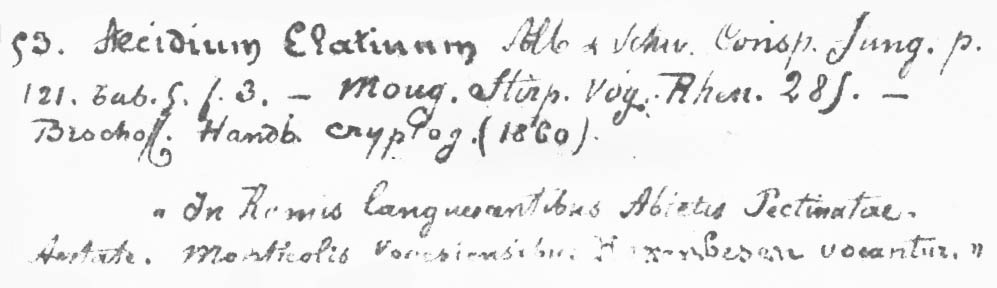 53. Aecidium Elatinum Alb & Schw. Consp. Fung. p.
121. tab. 5. f. 3. — Moug. Stirp. Vog. Rhen. 285. —
Handb. cryptog. (1860).
" In Ramis languescentibus Abietis Pectinatae.
Aestate. Monticolis Vogesiensibus Hexenbesen vocantur. "